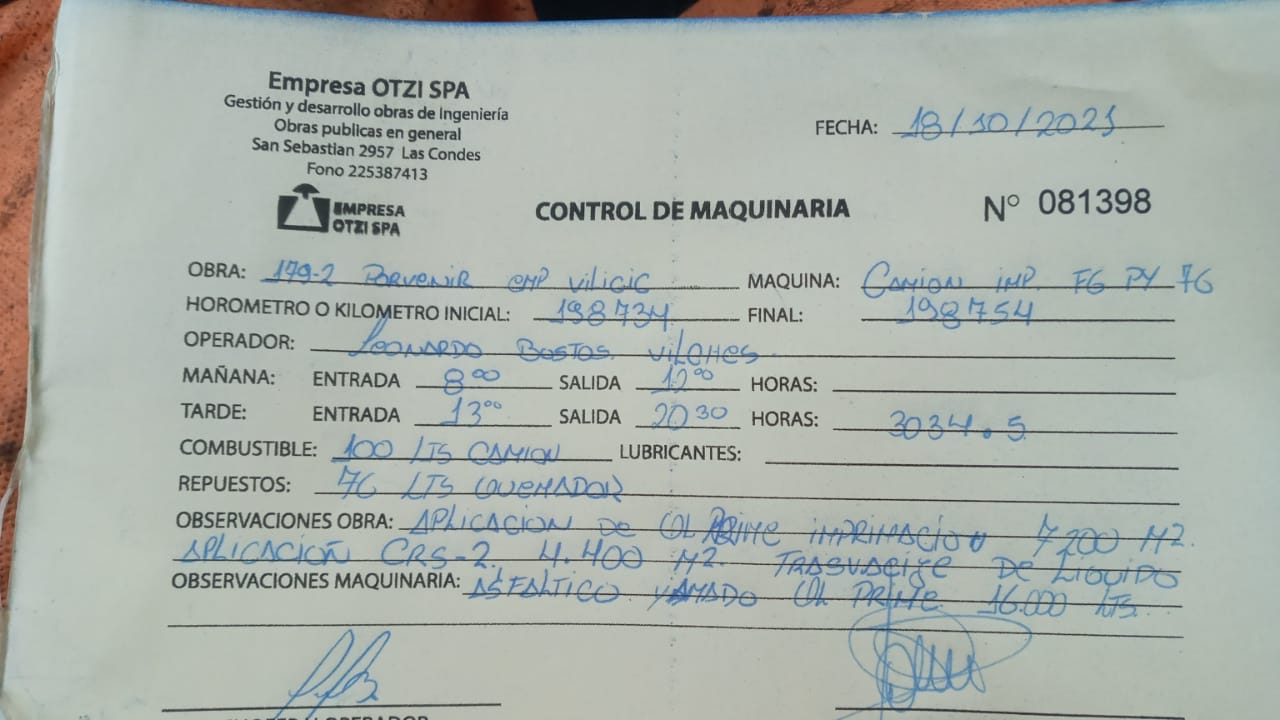 Empresa OTZI SPA
Gestión y desarrollo obras de Ingeniería
Obras publicas en general
San Sebastian 2957 Las Condes
Fono 225387413
EMPRESA
OTZI SPA
FECHA: 18/10/2021
CONTROL DE MAQUINARIA
N° 081398
OBRA: 179-2 Porvenir EMP Vilicic MAQUINA: Camion imp. FG PY 76
HOROMETRO O KILOMETRO INICIAL: 198734 FINAL: 198754
OPERADOR: Leonardo Bustos Vilches
MAÑANA: ENTRADA 8:00 SALIDA 12:00 HORAS:
TARDE: ENTRADA 13:00 SALIDA 20:30 HORAS: 3034.5
COMBUSTIBLE: 100 LTS CAMION LUBRICANTES:
REPUESTOS: 76 LTS QUEMADOR
OBSERVACIONES OBRA: APLICACION DE COL PRIME IMPRIMACION 7200 M2.
APLICACIÓN CRS-2 4.400 M2. TRASVACIJE DE LIQUIDO
OBSERVACIONES MAQUINARIA: ASFALTICO YAMADO COL PRIME 16.000 LTS.
OPERADOR